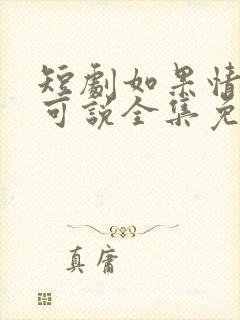 短劇如果情
可說全集免
真庸